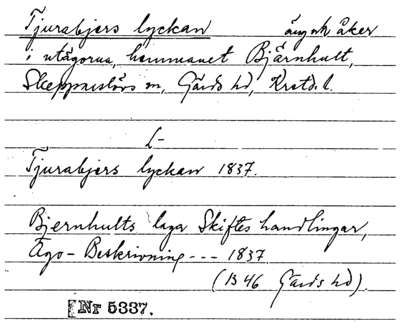 Tjurabjers lyckan äng och åker
i utägorna, hemmanet Bjärnhult,
Skepparslövs sn, Gärds hd, Krstd. l.
L-
Tjurabjers lyckan 1837.
Bjernhults laga Skiftes handlingar,
Ägo-Beskrivning --- 1837
(B46 Gärds hd).
Nr 5337.